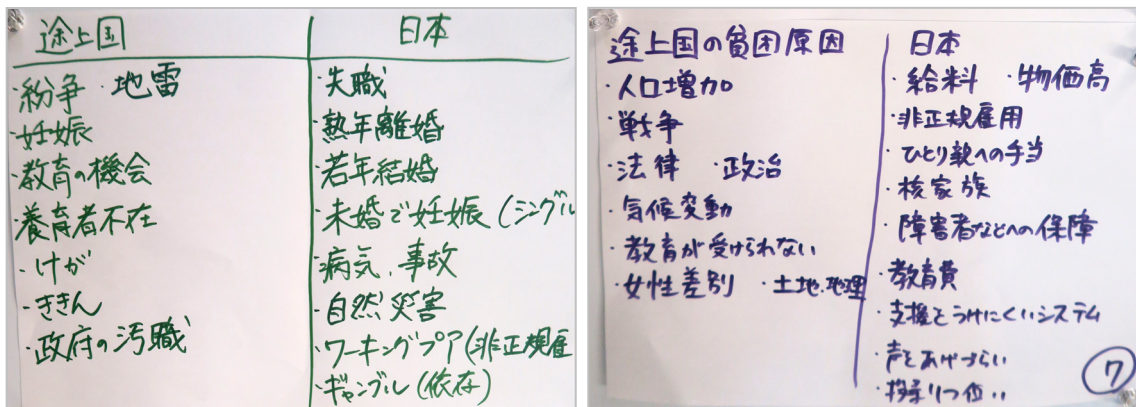 途上国
・紛争 ・地雷
・妊娠
・教育の機会
・養育者不在
・けが
・ききん
・政府の汚職
日本
・失職
・熟年離婚
・若年結婚
・未婚で妊娠(シングル
・病気、事故
・自然災害
・ワーキングプア(非正規雇
・ギャンブル(依存)
途上国の貧困原因
・人口増加
・戦争
・法律 ・政治
・気候変動
・教育が受けられない
・女性差別 ・土地・地理
日本
・給料 ・物価高
・非正規雇用
・ひとり親への手当
・核家族
・障害者などへの保障
・教育費
・支援をうけにくいシステム
・声をあげづらい
7